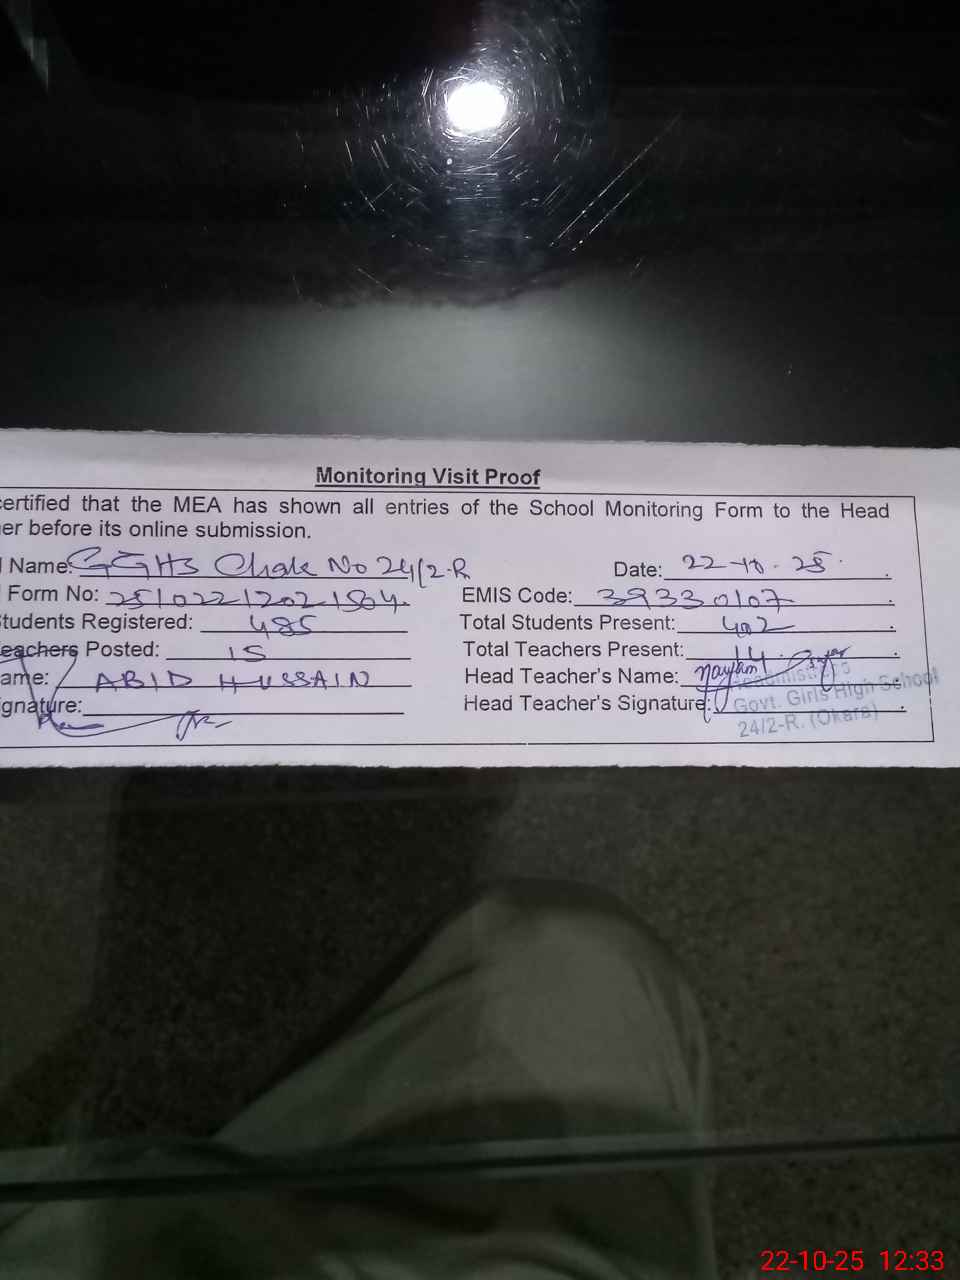 Monitoring Visit Proof
certified that the MEA has shown all entries of the School Monitoring Form to the Head
er before its online submission.
Name: GGHS Chak No 24/2-R Date: 22-10-25.
Form No: 25102212021504. EMIS Code: 39330107
Students Registered: 485 Total Students Present: 402
eachers Posted: 15 Total Teachers Present: 14
ame: ABID HUSSAIN Head Teacher's Name:
gnature: Head Teacher's Signature:
Govt. Girls High School
24/2-R. (Okara)
22-10-25 12:33